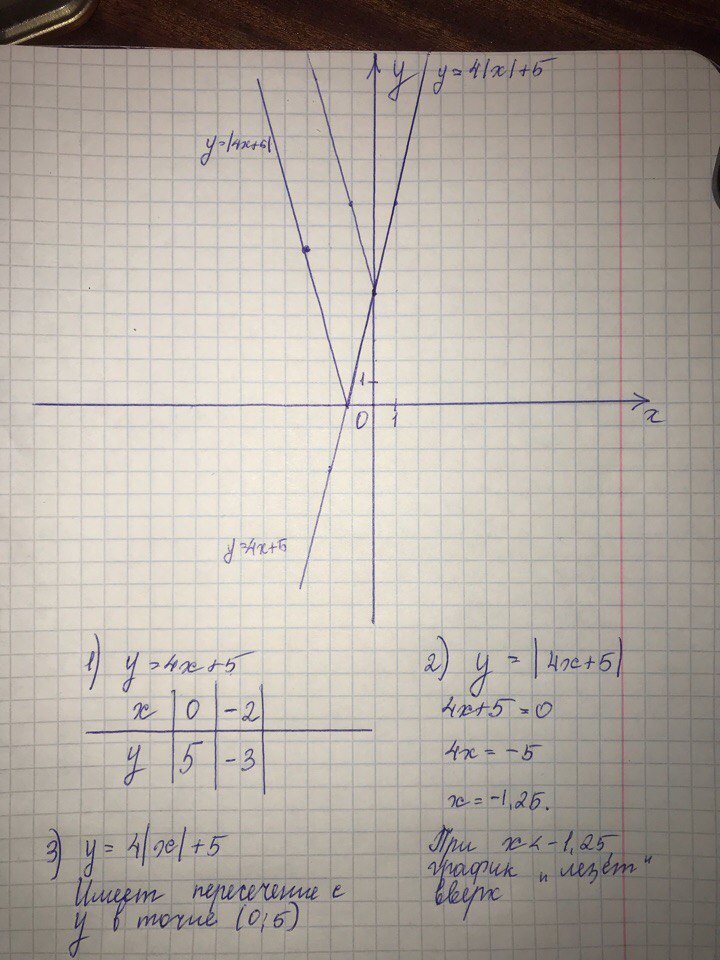 y y=4|x|+5
y=|4x+5|
1
0 1 x
y=4x+5
1) y=4x+5
x 0 -2
y 5 -3
2) y = |4x+5|
4x+5=0
4x = -5
x = -1,25.
При x<-1,25,
график "лезет"
вверх
3) y = 4|x|+5
Имеет пересечение с
y в точке (0;5)